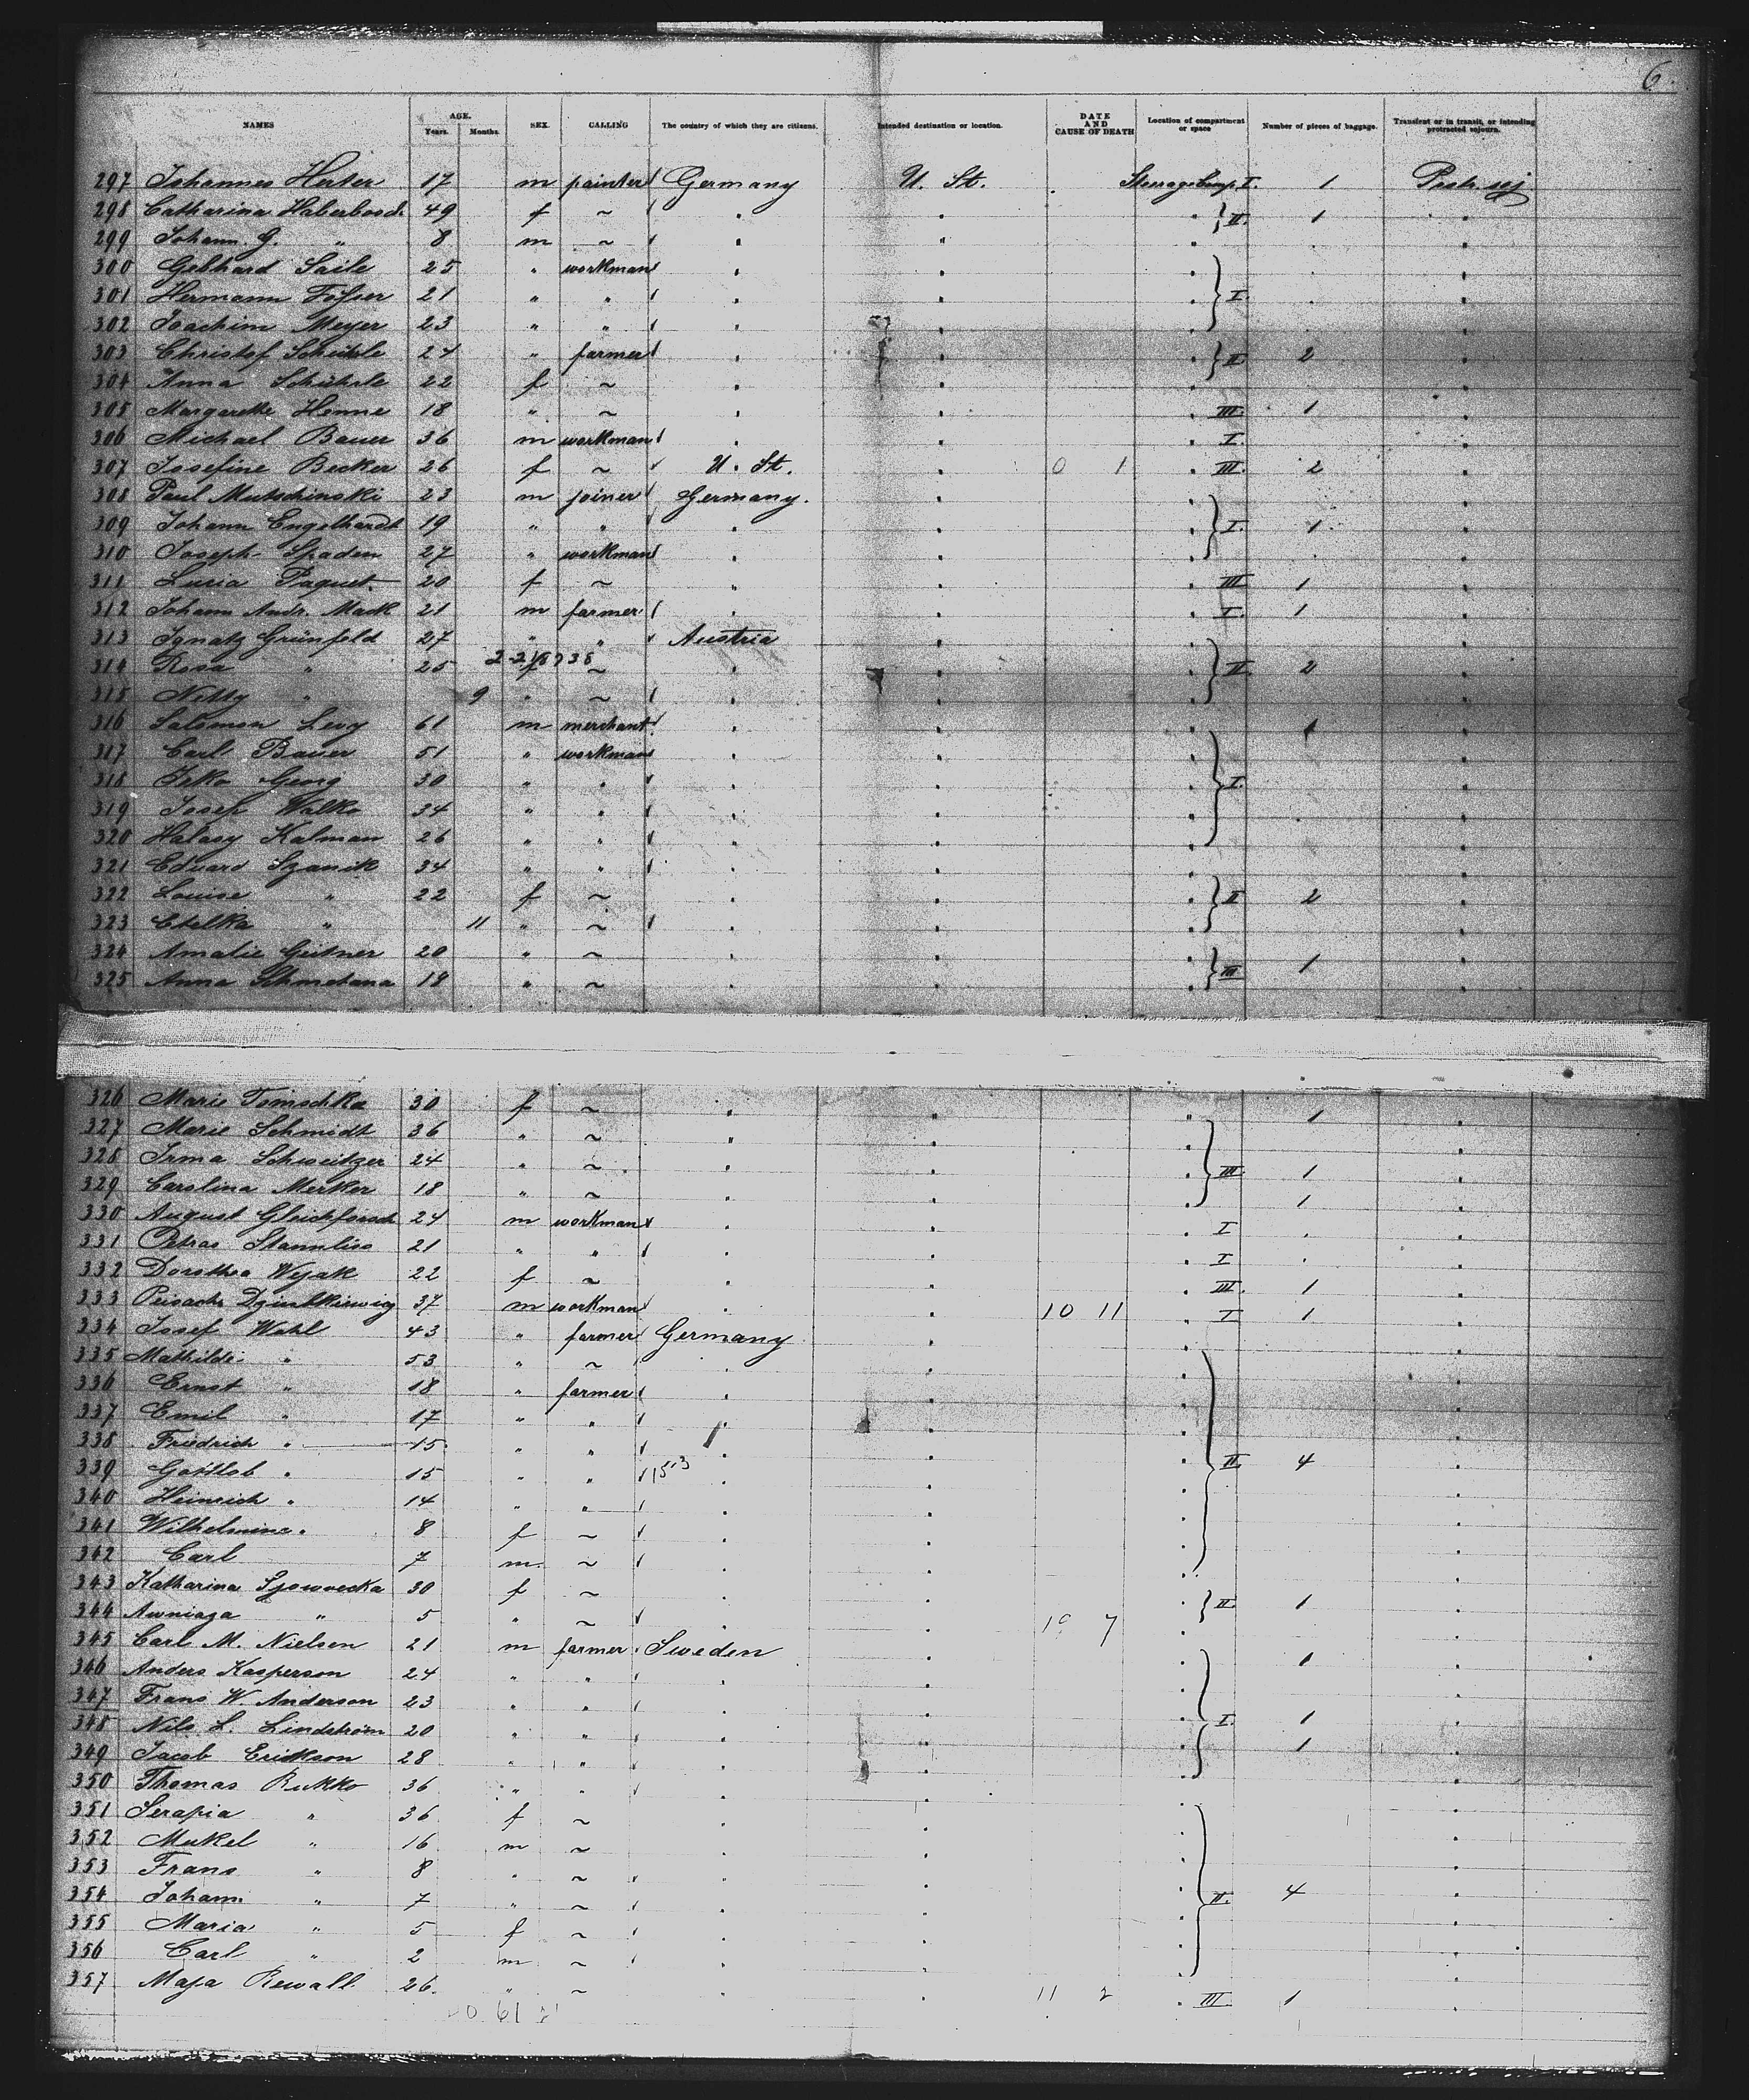 6.
NAMES AGE. Years. Months. SEX. CALLING The country of which they are citizens. Intended destination or location. DATE AND CAUSE OF DEATH Location of compartment or space Number of pieces of baggage. Transient or in transit, or intending protracted sojourn.
297 Johannes Herter 17 m painter Germany U. St. Steerage Comp. I. 1 Protr. soj
298 Catharina 49 f ~ " " " II. 1 "
299 Johann G. " 8 m ~ " " " "
300 Gebhard Saile 25 " workman " " " "
301 Hermann 21 " " " " " I. "
302 Joachim Meyer 23 " " " " " "
303 Christof 24 " farmer " " " II 2 "
304 Anna 22 f ~ " " " "
305 Margarethe Henne 18 " ~ " " " III. 1 "
306 Michael Bauer 36 m workman " " " I. "
307 Josefine Becker 26 f ~ U. St. " 0 1 " III. 2 "
308 Paul Mutschinski 23 m joiner Germany. " " "
309 Johann Engelhardt 19 " " " " " I. 1 "
310 Joseph Spaden 27 " workman " " " "
311 Lucia Paquet 20 f ~ " " " III 1 "
312 Johann Andr. Mack 21 m farmer " " " I. 1 "
313 Ignatz Grünfeld 27 " " Austria " " "
314 Rosa " 25 f ~ " " " II. 2 "
315 Netty " 9 " ~ " " " "
316 Salomon Levy 61 m merchant " " " 1 "
317 Carl Bauer 51 " workman " " " "
318 Georg 30 " " " " " I. "
319 Josef Walko 34 " " " " " "
320 Halasy Kalman 26 " " " " " "
321 Eduard Szanik 34 " " " " " "
322 Louise " 22 f ~ " " " II 2 "
323 Etelka " 11 " ~ " " " "
324 Amalie Geitner 20 " ~ " " " 1 "
325 Anna Schmetana 18 " ~ " " " III "
326 Marie Tomschka 30 f ~ " " " 1 "
327 Marie Schmidt 36 " ~ " " " "
328 Irma Schweitzer 24 " ~ " " " III. 1 "
329 Carolina Merker 18 " ~ " " " 1 "
330 August 24 m workman " " " I "
331 Petras 21 " " " " " I "
332 Dorothea Wejak 22 f ~ " " " III. 1 "
333 37 m workman " " 10 11 " I 1 "
334 Josef Wahl 43 " farmer Germany " " "
335 Mathilde " 53 " ~ " " " "
336 Ernst " 18 " farmer " " " "
337 Emil " 17 " " " " " "
338 Friedrich " 15 " " " " " "
339 Gottlob " 15 " " " " " II. 4 "
340 Heinrich " 14 " " " " " "
341 Wilhelmine " 8 f ~ " " " "
342 Carl 7 m. ~ " " " "
343 Katharina 30 f ~ " " " II. 1 "
344 " 5 " ~ " " " "
345 Carl M. Nielsen 21 m farmer Sweden " " 1 "
346 Anders Kasperson 24 " " " " " "
347 Frans W. Anderson 23 " " " " " "
348 Nils L. Lindström 20 " " " " " I. 1 "
349 Jacob Erickson 28 " " " " " 1 "
350 Thomas Rukko 36 " " " " " "
351 Serapia " 36 f ~ " " " "
352 " 16 m ~ " " " "
353 Frans " 8 " ~ " " " "
354 Johann " 7 " ~ " " " II. 4 "
355 Maria " 5 f ~ " " " "
356 Carl " 2 m ~ " " " "
357 Maja Rewall 26. " ~ " " 11 2 " III. 1 "